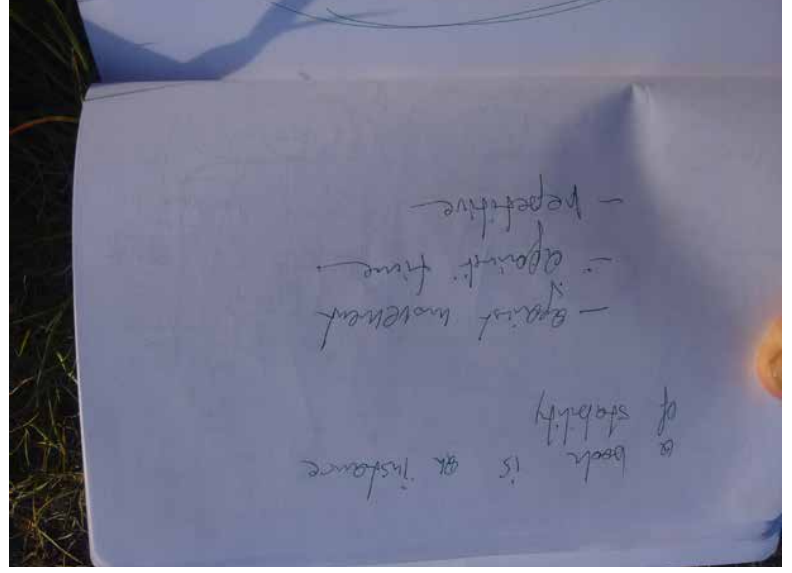 a book is an instance
of stability
- against movement
- against time
- repetitive